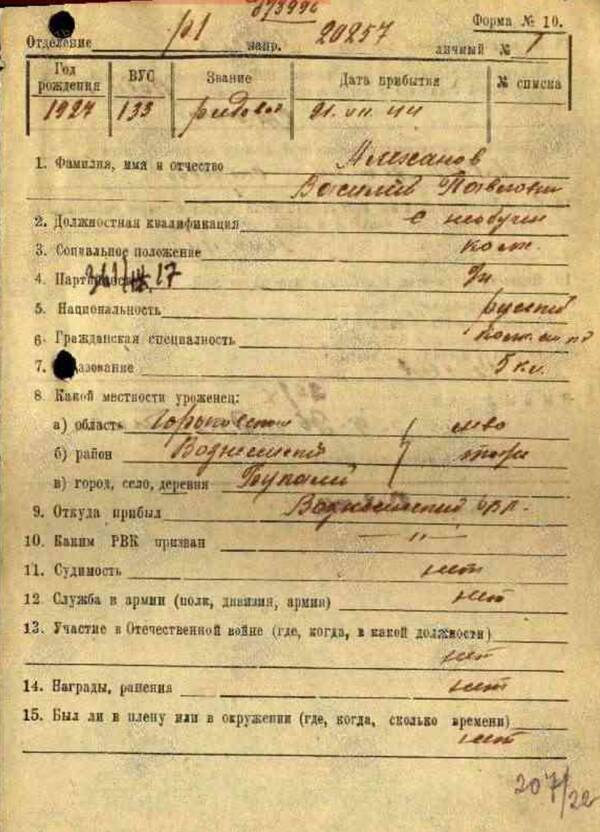 б/3996
Форма № 10.
Отделение р1 напр. 20257 личный № 1
Год рождения ВУС Звание Дата прибытия № списка
1927 133 рядовой 21.VII.44
1. Фамилия, имя и отчество Алеханов
Василий Павлович
2. Должностная квалификация необучен
3. Социальное положение колх.
4. 17 б/п
5. Национальность русский
6. Гражданская специалность
7. 5 кл.
8. Какой местности уроженец:
а) область Горьковская
б) район Вознесенский
в) город, село, деревня
9. Откуда прибыл Вознесенский
10. Каким РВК призван — " —
11. Судимость нет
12. Служба в армии (полк, дивизия, армия) нет
13. Участие в Отечественной войне (где, когда, в какой должности)
нет
14. Награды, ранения нет
15. Был ли в плену или в окружении (где, когда, сколько времени)
нет
207/22